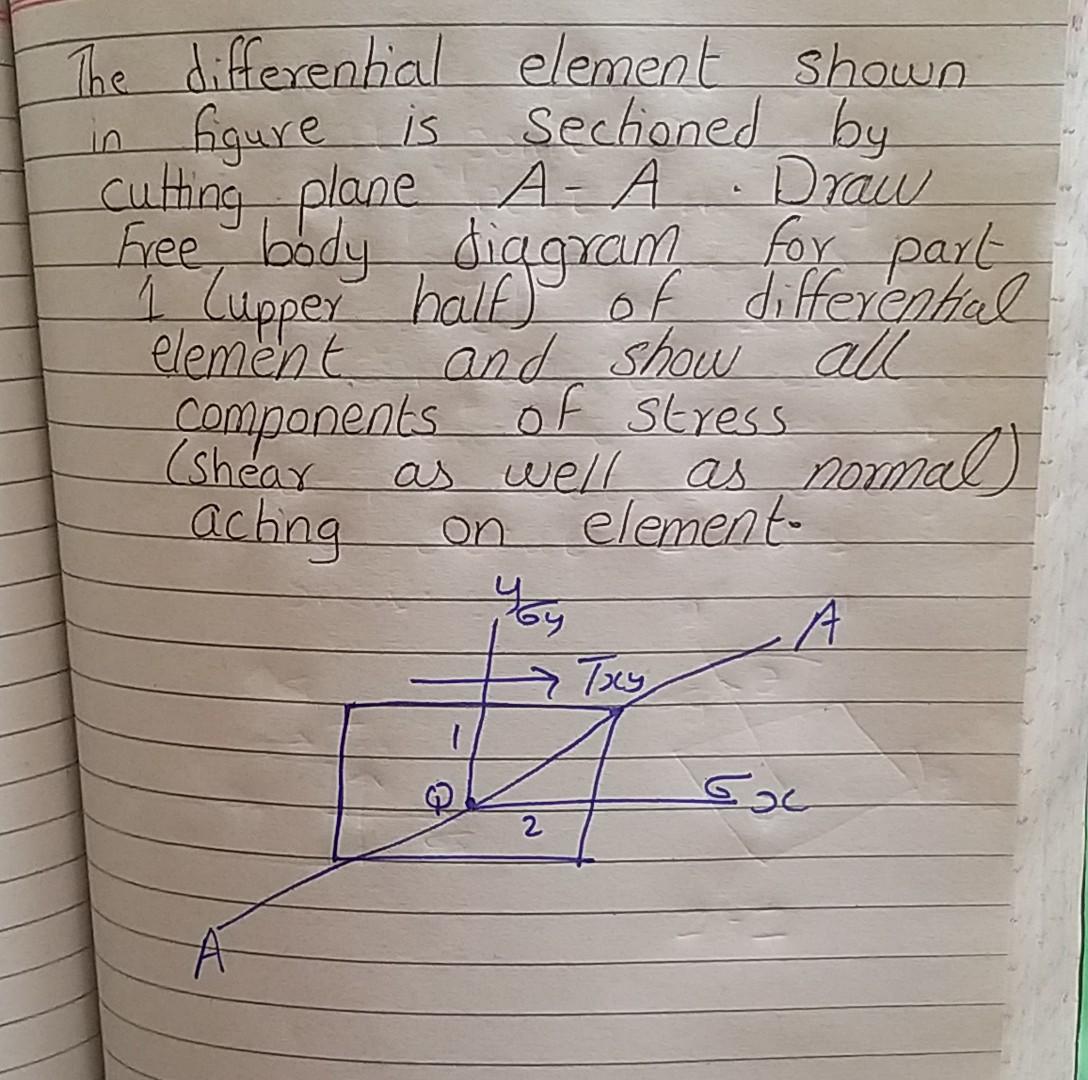 The differential element shown
in figure is sectioned by
cutting plane A-A. Draw
Free body diagram for part
1 (upper half) of differential
element and show all
components of stress
(shear as well as normal)
acting on element.
y
σy
A
Txy
1
Q
σx
2
A